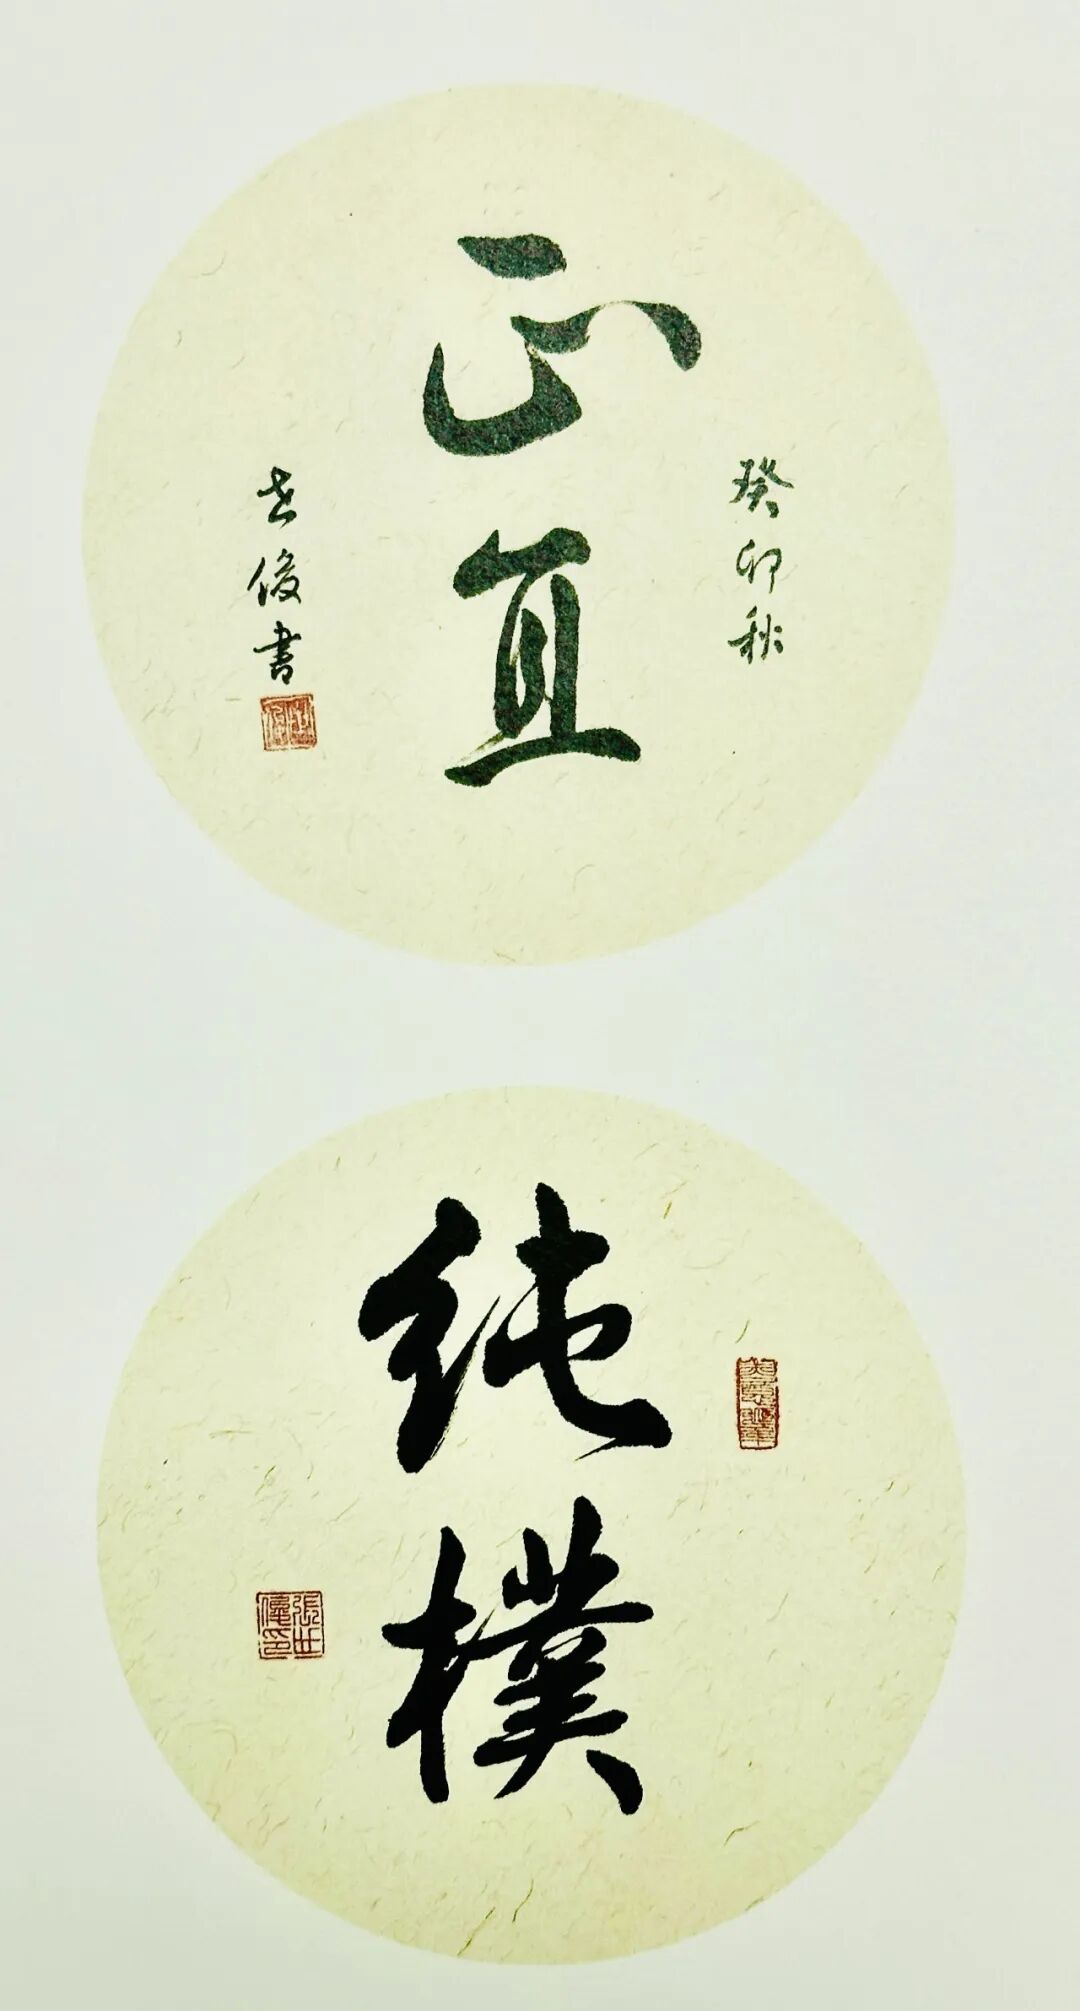 癸卯秋
正直
世俊書
純樸
張世俊印